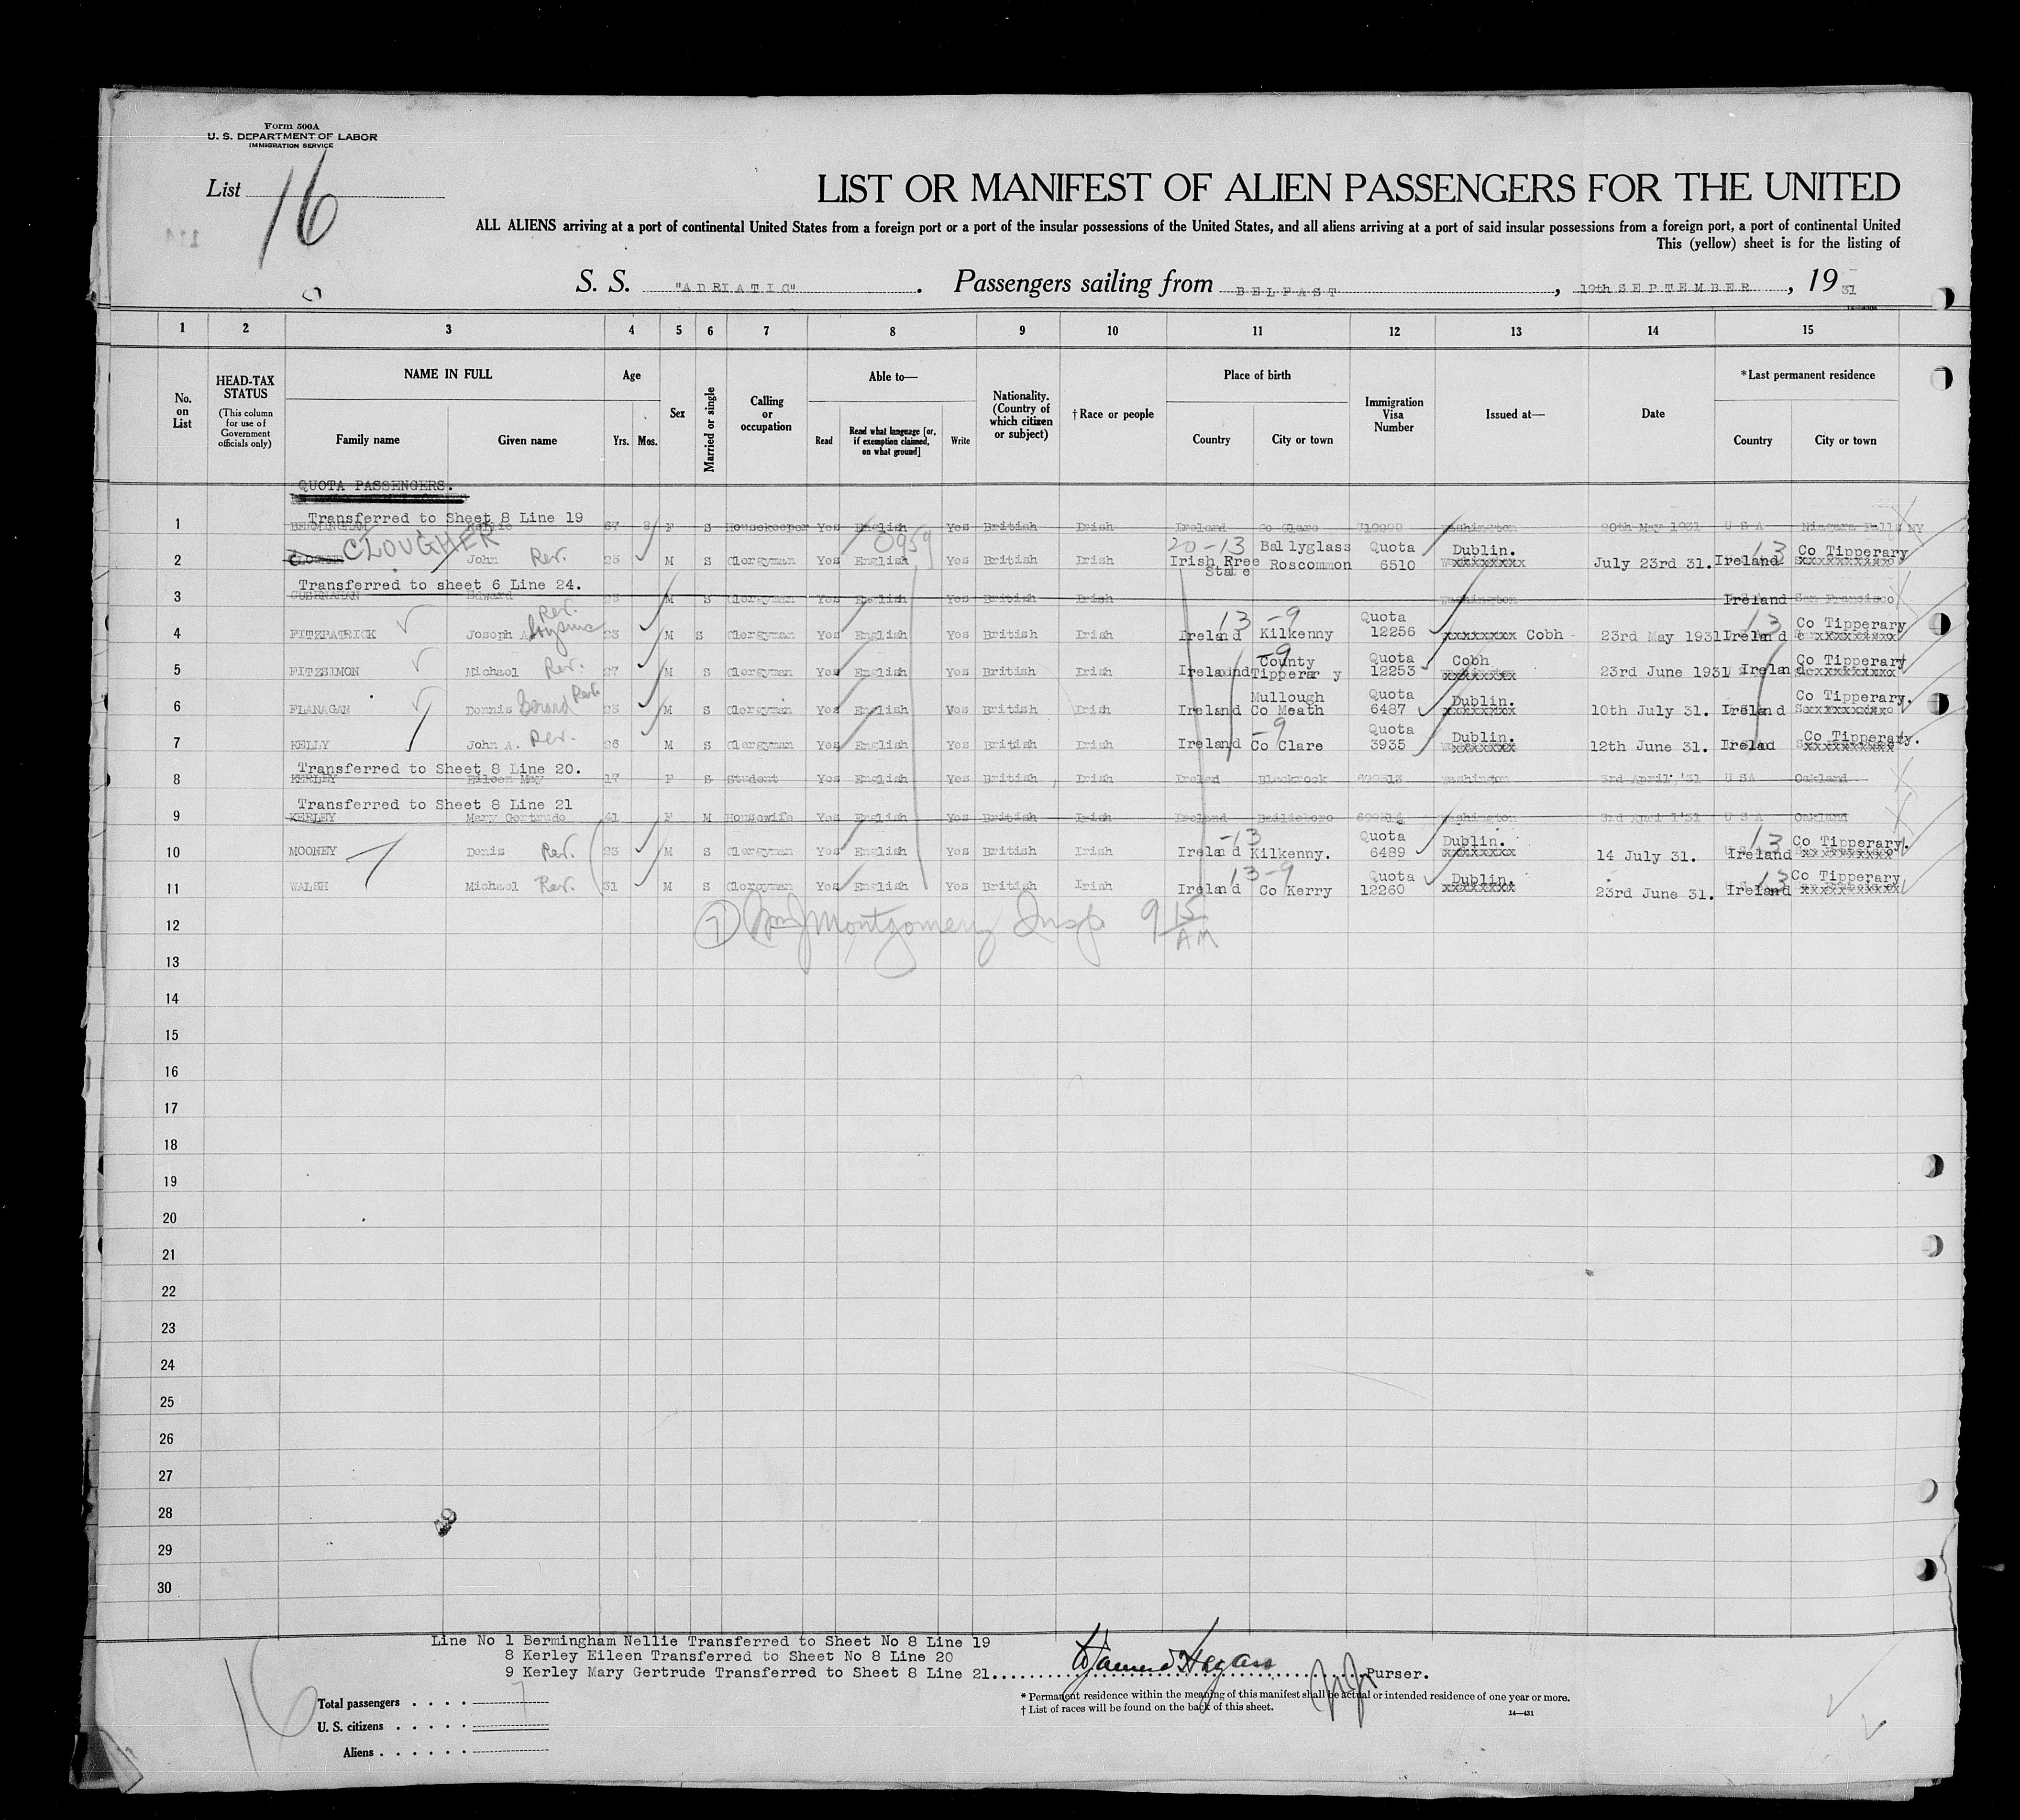 Form 500A
U. S. DEPARTMENT OF LABOR
IMMIGRATION SERVICE
List 16
LIST OR MANIFEST OF ALIEN PASSENGERS FOR THE UNITED
ALL ALIENS arriving at a port of continental United States from a foreign port or a port of the insular possessions of the United States, and all aliens arriving at a port of said insular possessions from a foreign port, a port of continental United
This (yellow) sheet is for the listing of
S. S. "ADRIATIC". Passengers sailing from BELFAST, 19th SEPTEMBER, 1931
1 2 3 4 5 6 7 8 9 10 11 12 13 14 15
No. on List
HEAD-TAX STATUS (This column for use of Government officials only)
NAME IN FULL
Family name Given name
Age
Yrs. Mos.
Sex
Married or single
Calling or occupation
Able to—
Read Read what language [or, if exemption claimed, on what ground] Write
Nationality. (Country of which citizen or subject)
† Race or people
Place of birth
Country City or town
Immigration Visa Number
Issued at—
Date
*Last permanent residence
Country City or town
QUOTA PASSENGERS.
Transferred to Sheet 8 Line 19
1 BERMINGHAM Nellie 67 F S Housekeeper Yes English Yes British Irish Ireland Co Clare Washington 20th May 1931 U S A Niagara Falls NY
2 CLOUGHER John Rev. 25 M S Clergyman Yes English Yes British Irish 20-13 Irish Free State Ballyglass Roscommon Quota 6510 Dublin. xxxxxxxx July 23rd 31. Ireland 13 Co Tipperary xxxxxxxxxx
0959
Transferred to sheet 6 Line 24.
3 Edward M S Clergyman Yes English Yes British Irish Washington Ireland San Francisco
4 FITZPATRICK Joseph A Rev. 23 M S Clergyman Yes English Yes British Irish Ireland 13 -9 Kilkenny Quota 12256 xxxxxxxx Cobh 23rd May 1931 Ireland 13 Co Tipperary xxxxxxxxxx
5 FITZSIMON Michael Rev. 27 M S Clergyman Yes English Yes British Irish Ireland -9 County Tipperary Quota 12253 Cobh xxxxxxxx 23rd June 1931 Ireland Co Tipperary xxxxxxxxxx
6 FLANAGAN Dennis Gerard Rev. 25 M S Clergyman Yes English Yes British Irish Ireland Mullough Co Meath Quota 6487 Dublin. xxxxxxxx 10th July 31. Ireland Co Tipperary. xxxxxxxxxx
7 KELLY John A. Rev. 26 M S Clergyman Yes English Yes British Irish Ireland -9 Co Clare Quota 3935 Dublin. xxxxxxxx 12th June 31. Irelad Co Tipperary. xxxxxxxxxx
Transferred to Sheet 8 Line 20.
8 KERLEY Eileen May 17 F S Student Yes English Yes British Irish Ireland Blackrock Washington 3rd April '31 U S A Oakland
Transferred to Sheet 8 Line 21
9 KERLEY Mary Gertrude 41 F M Housewife Yes English Yes British Irish Ireland Bailieboro Washington 3rd April '31 U S A Oakland
10 MOONEY Denis Rev. 23 M S Clergyman Yes English Yes British Irish Ireland -13 Kilkenny. Quota 6489 Dublin. xxxxxxxx 14 July 31. Ireland 13 Co Tipperary. xxxxxxxxxx
11 WALSH Michael Rev. 31 M S Clergyman Yes English Yes British Irish Ireland 13-9 Co Kerry Quota 12260 Dublin. xxxxxxxx 23rd June 31. Ireland 13 Co Tipperary xxxxxxxxxx
12 7 Montgomery Insp 9 15 AM
13
14
15
16
17
18
19
20
21
22
23
24
25
26
27
28
29
30
Line No 1 Bermingham Nellie Transferred to Sheet No 8 Line 19
8 Kerley Eileen Transferred to Sheet No 8 Line 20
9 Kerley Mary Gertrude Transferred to Sheet 8 Line 21. Purser.
16
Total passengers . . . . 7
U. S. citizens . . . . .
Aliens . . . . . .
* Permanent residence within the meaning of this manifest shall be actual or intended residence of one year or more.
† List of races will be found on the back of this sheet.
14—431